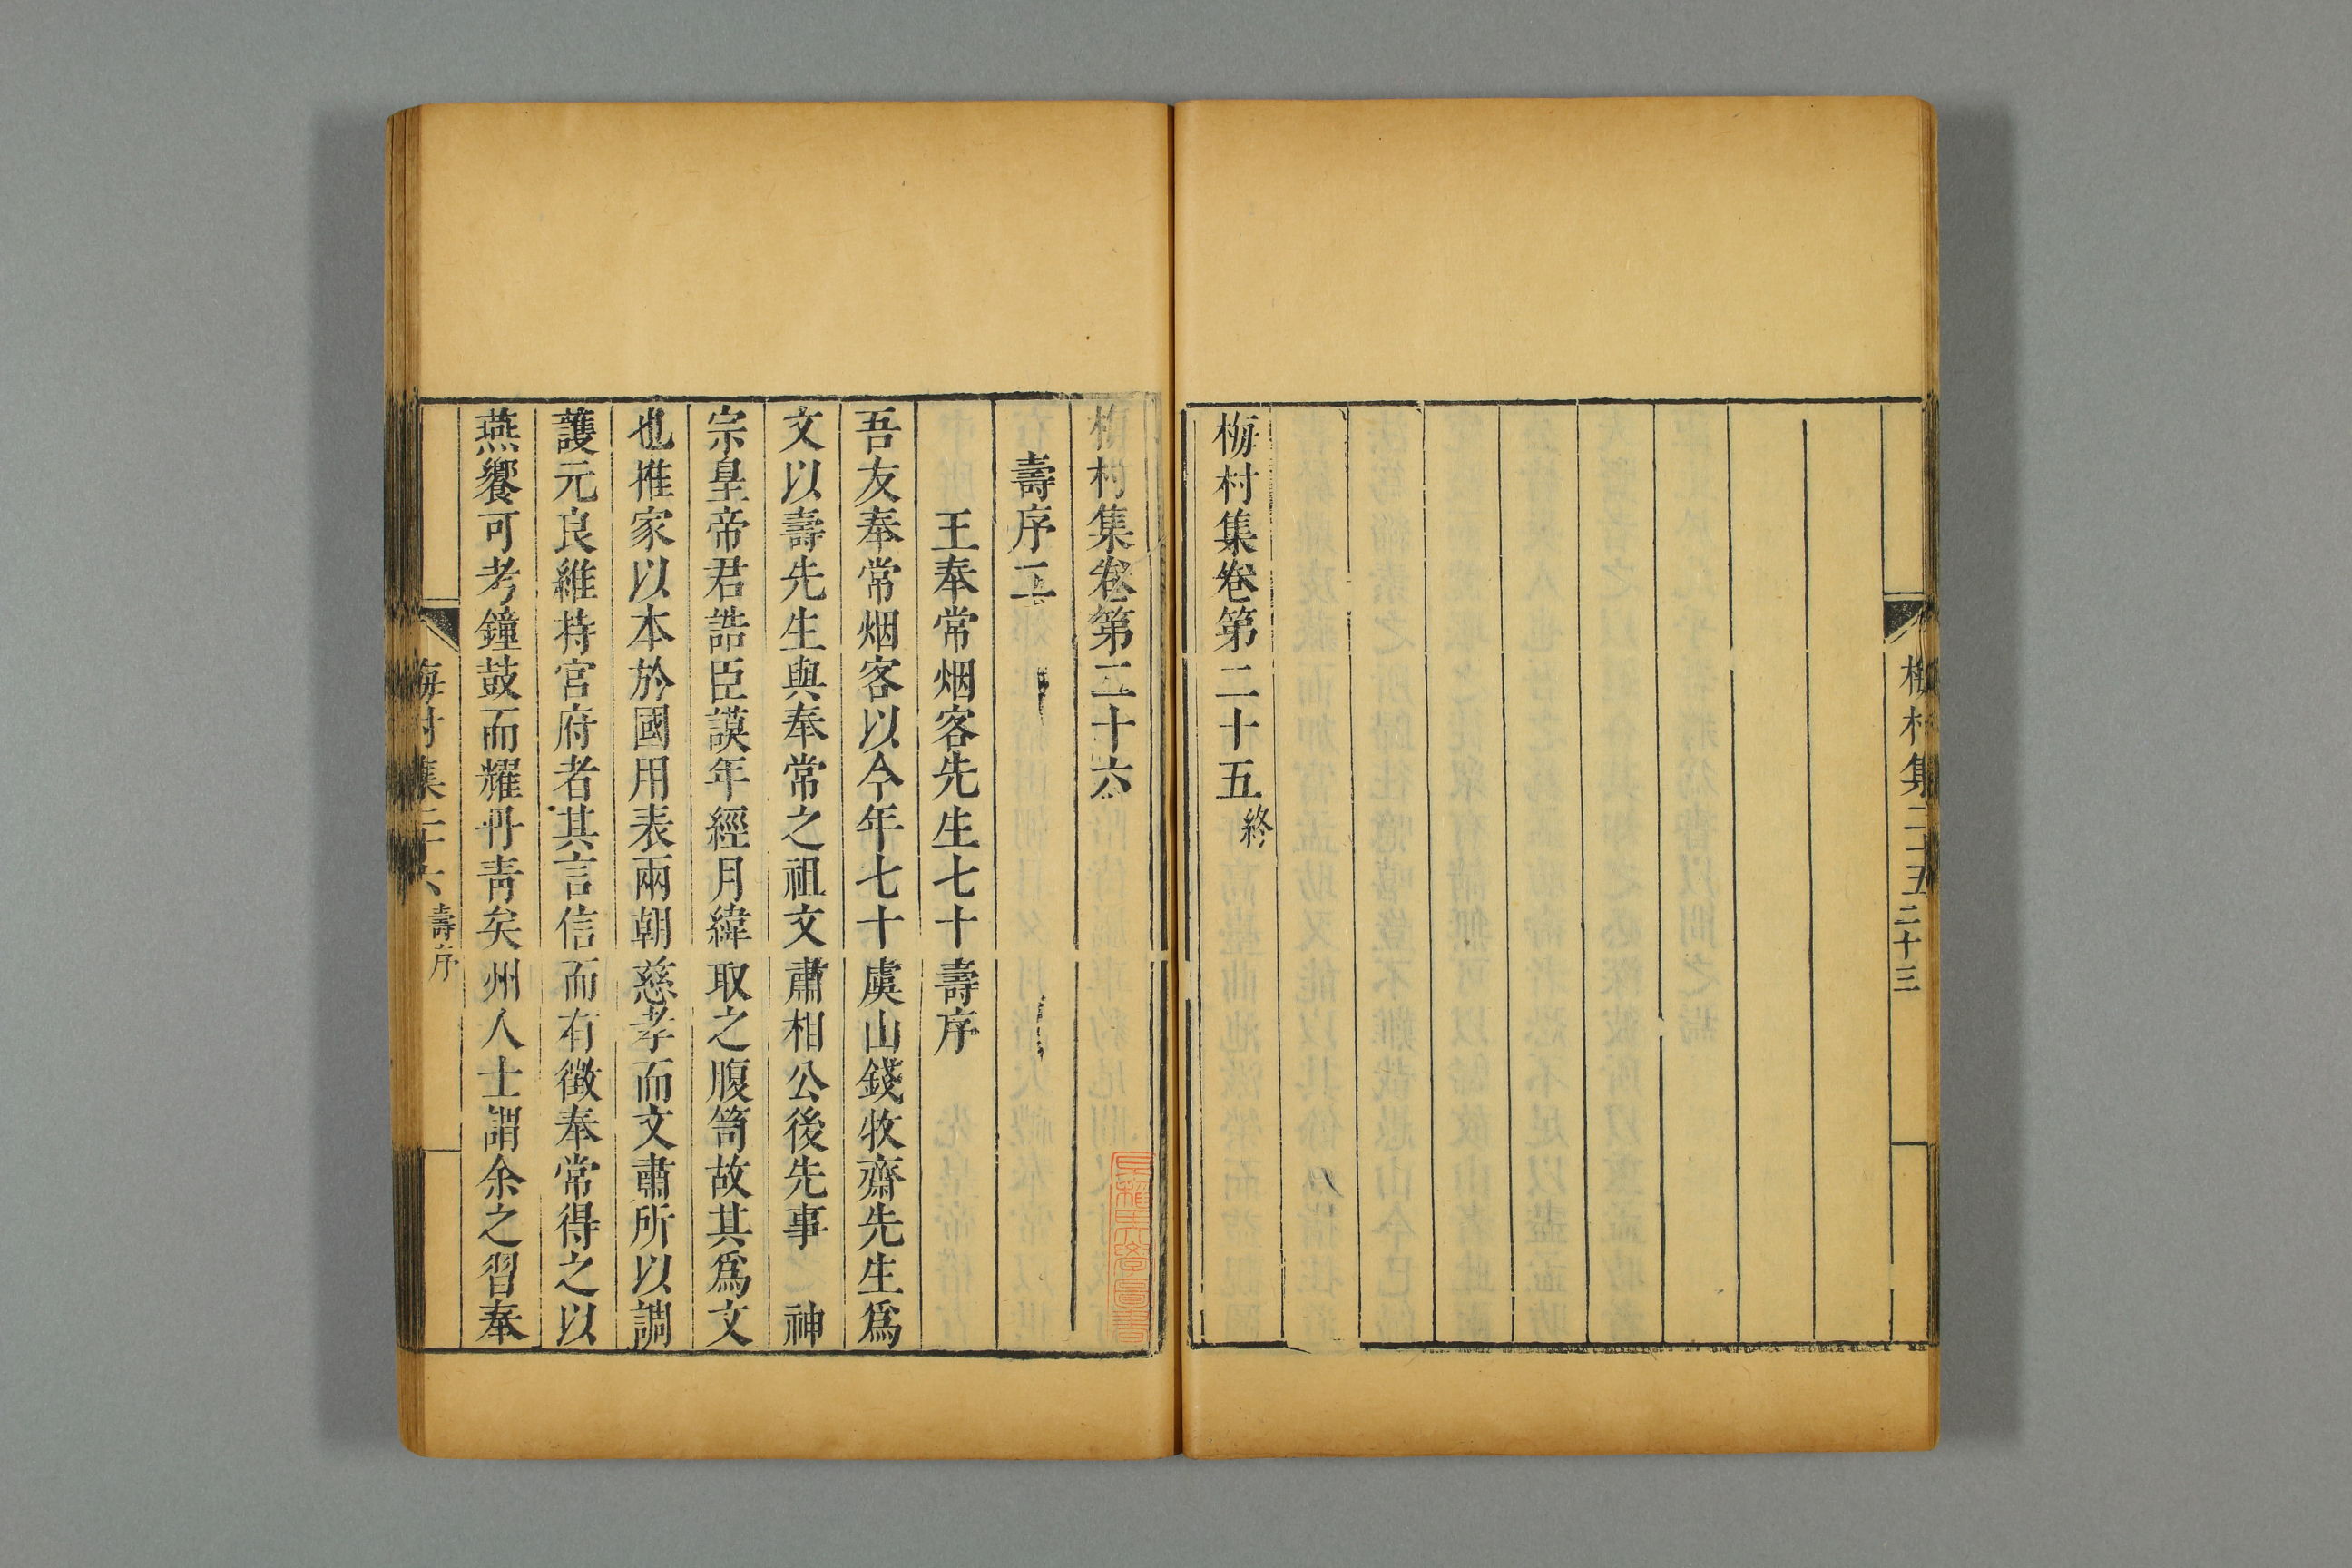 梅村集 二十五 二十三
梅村集卷第二十五 終
梅村集卷第二十六
壽序二
王奉常烟客先生七十壽序
吾友奉常烟客以今年七十虞山錢牧齋先生爲
文以壽先生與奉常之祖文肅相公後先事 神
宗皇帝君誥臣謨年經月緯取之腹笥故其爲文
也推家以本於國用表兩朝慈孝而文肅所以調
護元良維持官府者其言信而有徵奉常得之以
燕饗可考鐘鼓而耀丹靑矣州人士謂余之習奉
梅村集 二十六 壽序